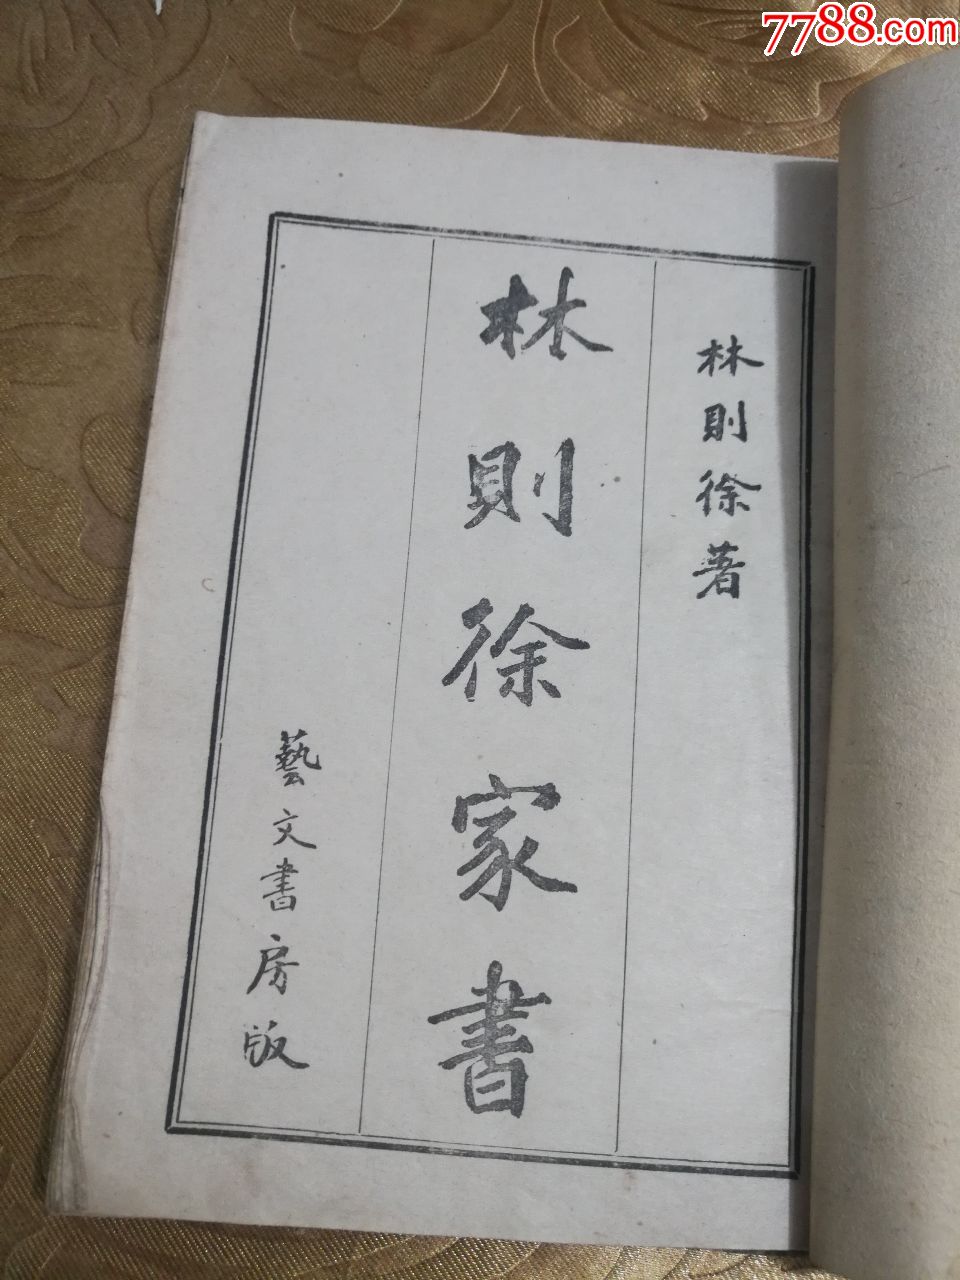 7788.com
林則徐著
林則徐家書
藝文書房版